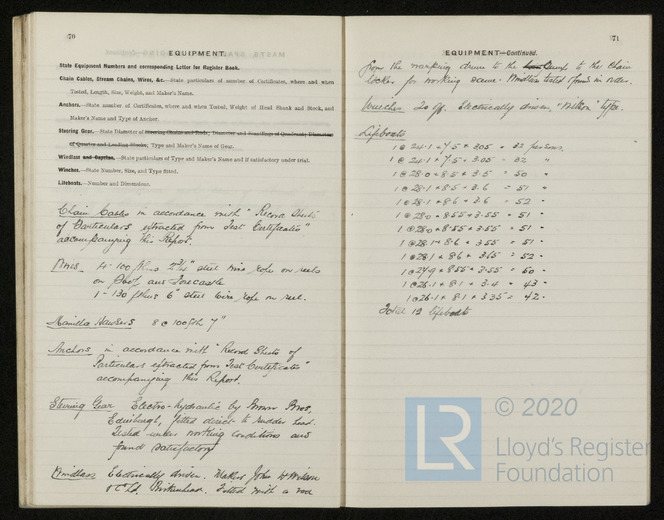 70
EQUIPMENT.
State Equipment Numbers and corresponding Letter for Register Book.
Chain Cables, Stream Chains, Wires, &c.—State particulars of number of Certificates, where and when
Tested, Length, Size, Weight, and Maker's Name.
Anchors.—State number of Certificates, where and when Tested, Weight of Head Shank and Stock, and
Maker's Name and Type of Anchor.
Steering Gear.—State Diameter of Steering Chains and Rods, Diameter and Scantlings of Quadrant, Diameter
of Quarter and Leading Blocks, Type and Maker's Name of Gear.
Windlass and Capstan.—State particulars of Type and Maker's Name and if satisfactory under trial.
Winches.—State Number, Size, and Type fitted.
Lifeboats.—Number and Dimensions.
Chain Cables in accordance with "Record Sheets
of Particulars extracted from Test Certificates"
accompanying this Report.
Wires 4- 100 fthms 2¾" steel wire rope on reels
on Poop and Forecastle
1 - 130 fthms 6" steel wire rope on reel.
Manilla Hawsers 8 @ 100 fth 7"
Anchors in accordance with "Record Sheets of
Particulars extracted from Test Certificates"
accompanying this Report.
Steering Gear Electro-hydraulic by Brown Bros,
Edinburgh, fitted direct to rudder head.
Tested under working conditions and
found satisfactory
Windlass Electrically driven. Makers John H Wilson
& Co Ld, Birkenhead. Fitted with a
71
EQUIPMENT—Continued.
from the warping drum to the to the Chain
locker for working same. Windlass tested found in order.
Winches 20 off. Electrically driven, "Wilson" type.
Lifeboats
1 @ 24.1 × 7.5 × 3.05 = 32 persons.
1 @ 24.1 × 7.5 × 3.05 = 32 "
1 @ 28.0 × 8.5 × 3.5 = 50 "
1 @ 28.1 × 8.5 × 3.6 = 51 "
1 @ 28.1 × 8.6 × 3.6 = 52 "
1 @ 28.0 × 8.55 × 3.55 = 51 "
1 @ 28.0 × 8.55 × 3.55 = 51 "
1 @ 28.1 × 8.6 × 3.55 = 51 "
1 @ 28.1 × 8.6 × 3.65 = 52 "
1 @ 27.9 × 8.55 × 3.55 = 50 "
1 @ 26.1 × 8.1 × 3.4 = 43 "
1 @ 26.1 × 8.1 × 3.35 = 42 "
Total 12 lifeboats
LR © 2020
Lloyd's Register
Foundation